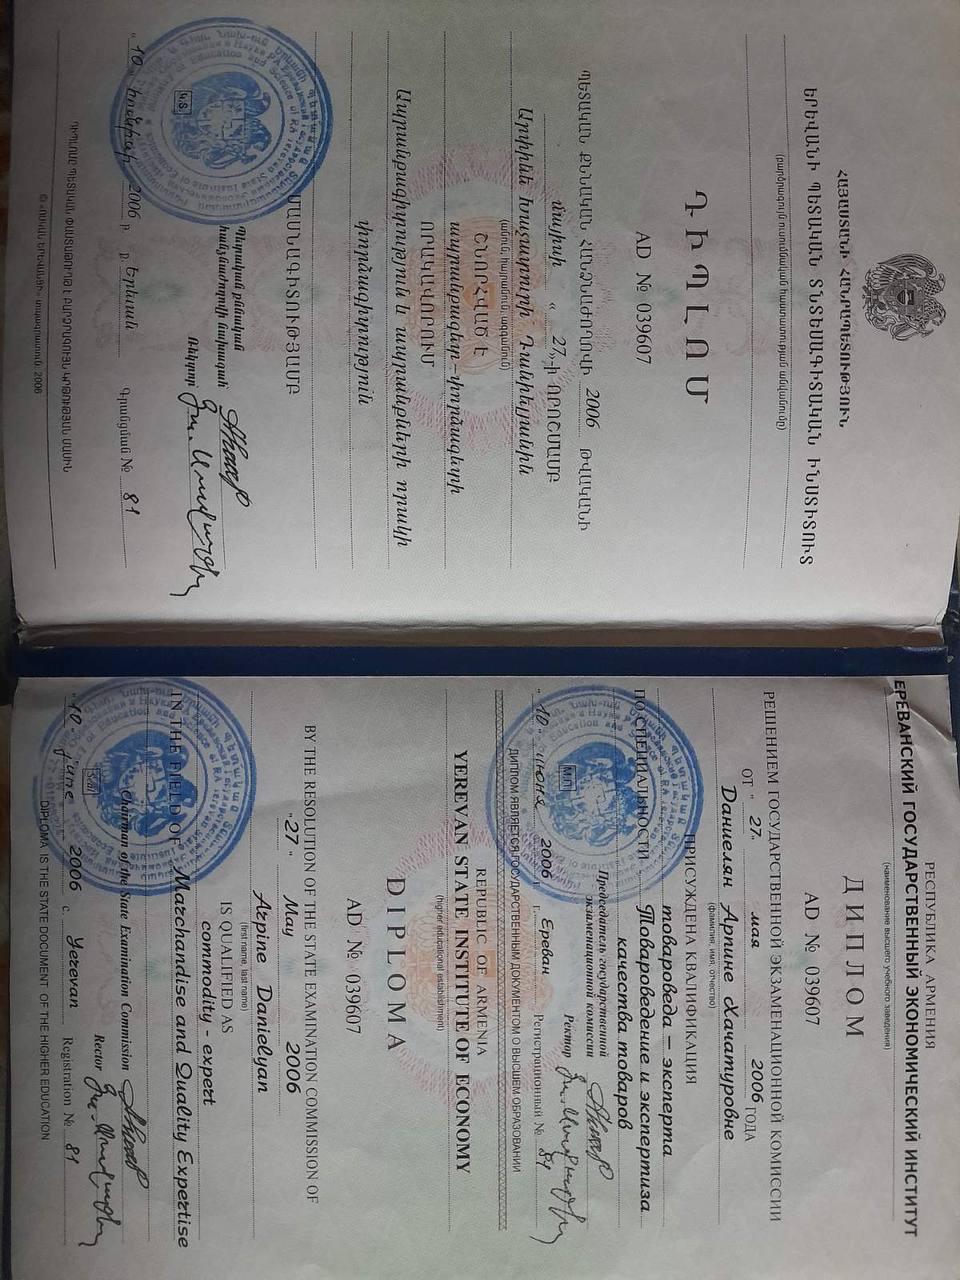 ՀԱՅԱՍՏԱՆԻ ՀԱՆՐԱՊԵՏՈՒԹՅՈՒՆ
ԵՐԵՎԱՆԻ ՊԵՏԱԿԱՆ ՏՆՏԵՍԱԳԻՏԱԿԱՆ ԻՆՍՏԻՏՈՒՏ
(բարձրագույն ուսումնական հաստատության անվանումը)
ԴԻՊԼՈՄ
AD № 039607
ՊԵՏԱԿԱՆ ՔՆՆԱԿԱՆ ՀԱՆՁՆԱԺՈՂՈՎԻ 2006 ԹՎԱԿԱՆԻ
մայիսի « 27»-ի ՈՐՈՇՄԱՄԲ
Արփինե Խաչատուրի Դանիելյանին
(անուն, հայրանուն, ազգանուն)
ՇՆՈՐՀՎԱԾ Է
ապրանքագետ-փորձագետի
ՈՐԱԿԱՎՈՐՈՒՄ
Ապրանքագիտություն և ապրանքների որակի
փորձագիտություն
ՄԱՍՆԱԳԻՏՈՒԹՅԱՄԲ
Պետական քննական
հանձնաժողովի նախագահ
Ռեկտոր
Կ.Տ.
"10" հունիսի 2006 թ. ք. Երևան Գրանցման № 81
ԴԻՊԼՈՄԸ ՊԵՏԱԿԱՆ ՓԱՍՏԱԹՈՒՂԹ Է ԲԱՐՁՐԱԳՈՒՅՆ ԿՐԹՈՒԹՅԱՆ ՄԱՍԻՆ
© «ՈՍԿԱՆ ԵՐԵՎԱՆՑԻ» տպագրատուն, 2006
РЕСПУБЛИКА АРМЕНИЯ
ЕРЕВАНСКИЙ ГОСУДАРСТВЕННЫЙ ЭКОНОМИЧЕСКИЙ ИНСТИТУТ
(наименование высшего учебного заведения)
ДИПЛОМ
AD № 039607
РЕШЕНИЕМ ГОСУДАРСТВЕННОЙ ЭКЗАМЕНАЦИОННОЙ КОМИССИИ
ОТ " 27" мая 2006 ГОДА
Даниелян Арпине Хачатуровне
(фамилия, имя, отчество)
ПРИСУЖДЕНА КВАЛИФИКАЦИЯ
товароведа – эксперта
ПО СПЕЦИАЛЬНОСТИ Товароведение и экспертиза
качества товаров
Председатель государственной
экзаменационной комиссии
Ректор
М.П.
"10" июня 2006 г. г. Ереван Регистрационный № 81
ДИПЛОМ ЯВЛЯЕТСЯ ГОСУДАРСТВЕННЫМ ДОКУМЕНТОМ О ВЫСШЕМ ОБРАЗОВАНИИ
REPUBLIC OF ARMENIA
YEREVAN STATE INSTITUTE OF ECONOMY
(higher educational establishment)
DIPLOMA
AD № 039607
BY THE RESOLUTION OF THE STATE EXAMINATION COMMISSION OF
"27 " May 2006
Arpine Danielyan
(first name, last name)
IS QUALIFIED AS
commodity - expert
IN THE FIELD OF Marchandise and Quality Expertise
Chairman of the State Examination Commission
Rector
Seal
"10" june 2006 c. Yerevan Registration № 81
DIPLOMA IS THE STATE DOCUMENT OF THE HIGHER EDUCATION